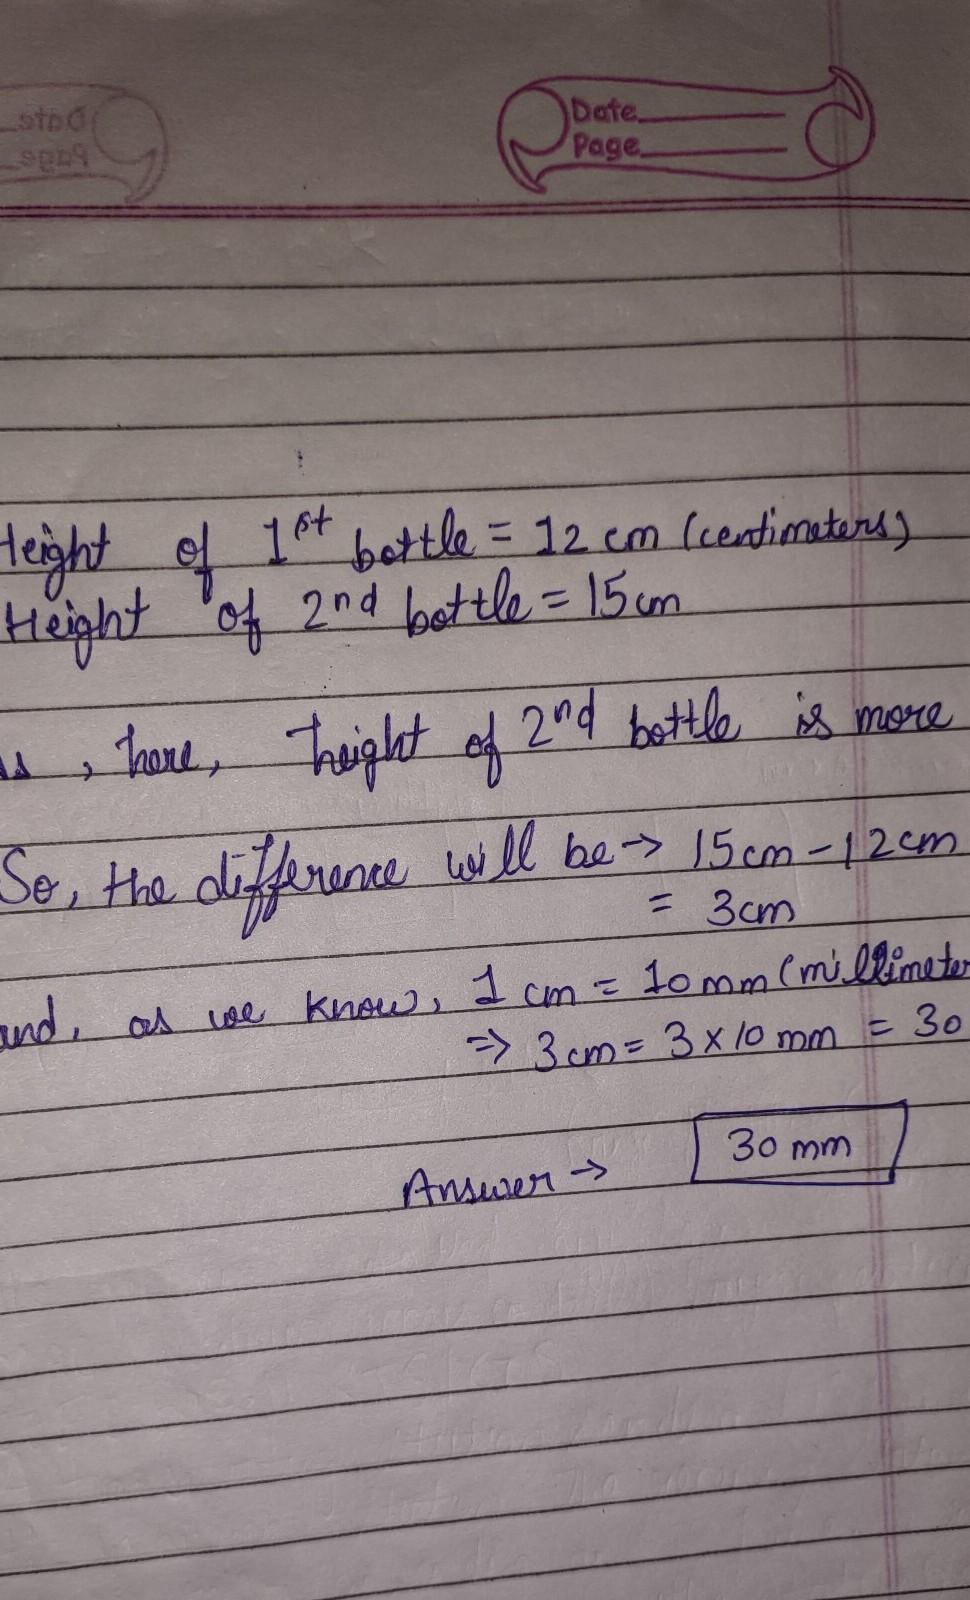 Date
Page
Height of 1st bottle = 12 cm (centimeters)
Height of 2nd bottle = 15cm
, here, height of 2nd bottle is more
So, the difference will be → 15cm - 12cm
= 3cm
and, as we know, 1 cm = 10mm (millimeter
⇒ 3cm = 3 × 10 mm = 30
Answer → 30 mm